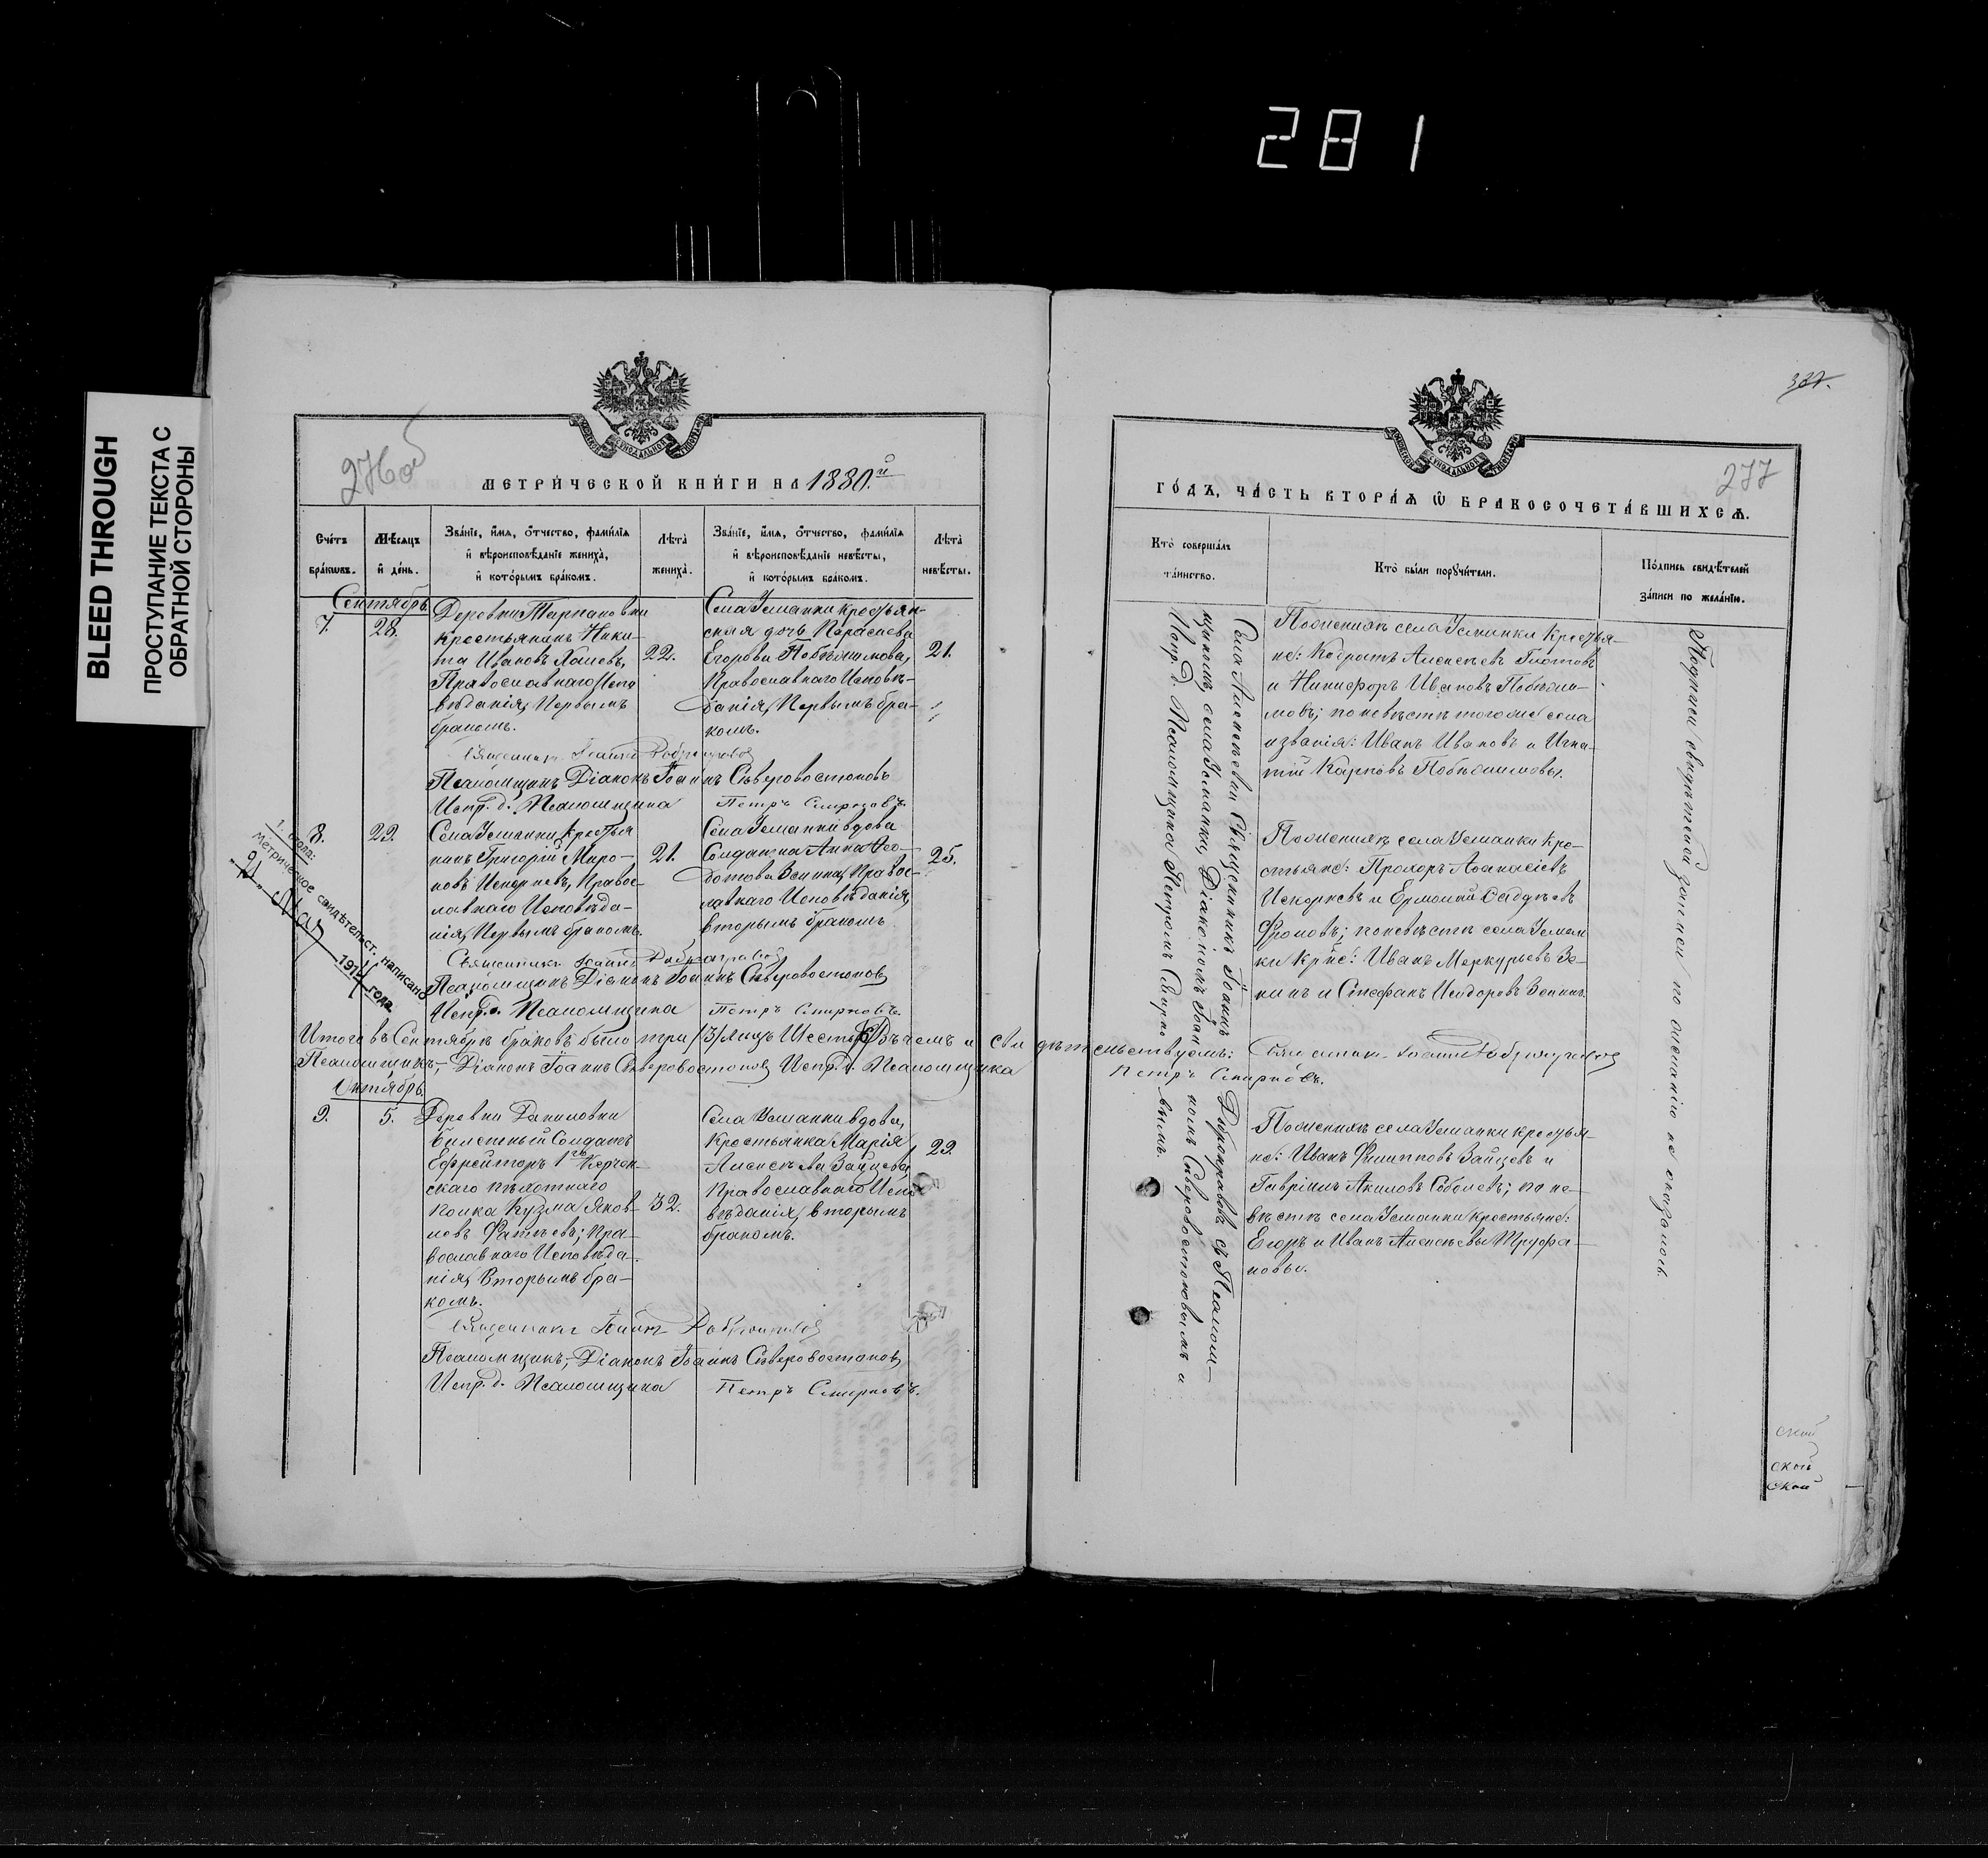 281
BLEED THROUGH
ПРОСТУПАНИЕ ТЕКСТА С
ОБРАТНОЙ СТОРОНЫ
276об
МЕТРИЧЕСКОЙ КНИГИ НА 1880.й
Счетъ
браковъ.
Мѣсяцъ
и день.
Званіе, имя, отчество, фамилія
и вѣроисповѣданіе жениха,
и которымъ бракомъ.
Лѣта
жениха.
Званіе, имя, отчество, фамилія
и вѣроисповѣданіе невѣсты,
и которымъ бракомъ.
Лѣта
невѣсты.
Сентябрь
7.
28.
Деревни Тарнановки
крестьянинъ Ники-
та Ивановъ Холевъ,
Православнаго Испо
вѣданія, Первымъ
бракомъ.
22.
Села Усманки крестьян-
ская дочь Параскева
Егорова Побѣжимова,
Православнаго Исповѣ-
данія, Первымъ бра-
комъ.
21.
Священникъ Іоаннъ Добронравов
Псаломщикъ Діаконъ Іоаннъ Сѣверовостоковъ
Испр. д. Псаломщика Петръ Смирновъ.
8.
29.
Села Усманки крестья
нинъ Григорій Миро-
новъ Искорневъ, Правос-
лавнаго Исповѣда-
нія, Первымъ бракомъ.
21.
Села Усманки вдова
Солдатка Анна Фео-
дотова Зенина, Правос-
лавнаго Исповѣданія,
вторымъ бракомъ
25.
Священникъ Іоаннъ Добронравов
Псаломщикъ Діаконъ Іоаннъ Сѣверовостоков
Испр. д. Псаломщика Петръ Смирновъ.
Метрическое свидѣтельст. написано
21 Мая 1914 года.
Итого въ Сентябрѣ браковъ было три /3/ лицъ Шесть /6/ Въ чемъ и свидѣтельствуемъ: Священник Іоаннъ Добронравов
Псаломщикъ, Діаконъ Іоаннъ Сѣверовостоков Испр. д. Псаломщика Петръ Смирновъ.
Октябрь
9.
5.
Деревни Даниловки
билетный Солдатъ
Ефрейторъ 1го Керчен-
скаго пѣхотнаго
полка Кузма Яков-
левъ Фатѣевъ; Пра-
вославнаго Исповѣда-
нія, Вторымъ бра-
комъ.
32.
Села Усманки вдова,
Крестьянка Марія
Алексѣева Зайцева,
Православнаго Испо
вѣданія, вторымъ
бракомъ.
29.
Священникъ Іоаннъ Добронравов
Псаломщикъ, Діаконъ Іоаннъ Сѣверовостоков
Испр. д. Псаломщика Петръ Смирновъ.
277
ГОДЪ, ЧАСТЬ ВТОРАЯ Ѿ БРАКОСОЧЕТАВШИХСЯ.
Кто совершалъ
таинство.
Кто были поручители.
Подпись свидѣтелей
записи по желанію.
Села Алексѣевки Священникъ Іоаннъ Добронравовъ съ Псалом-
щикомъ села Усманки, Діакономъ Іоан номъ Сѣверовостоковымъ и
Испр. д. Псаломщика Петромъ Смирно вымъ.
По женихѣ села Усманки Крестья-
не: Кодратъ Алексѣевъ Глотовъ
и Никифоръ Ивановъ Побѣжи-
мовъ; по невѣстѣ того же села
и званія: Иванъ Ивановъ и Игна-
тій Карповъ Побѣжимовы.
По женихѣ села Усманки Кре-
стьяне: Прохоръ Аѳанасіевъ
Искорневъ и Ермолай Ѳаддѣевъ
Фроловъ; по невѣстѣ села Усман
ки Крне: Иванъ Меркурьевъ Зе-
нинъ и Стефанъ Исидоровъ Зенинъ.
По женихѣ села Усманки крестья-
не: Иванъ Филипповъ Зайцевъ и
Гавріилъ Акимовъ Соболевъ; по не-
вѣстѣ села Усманки Крестьяне:
Егоръ и Иванъ Алексѣевы Труфа-
новы.
Подписи свидѣтелей записи по желанію не оказалось.
ской
ской
ской